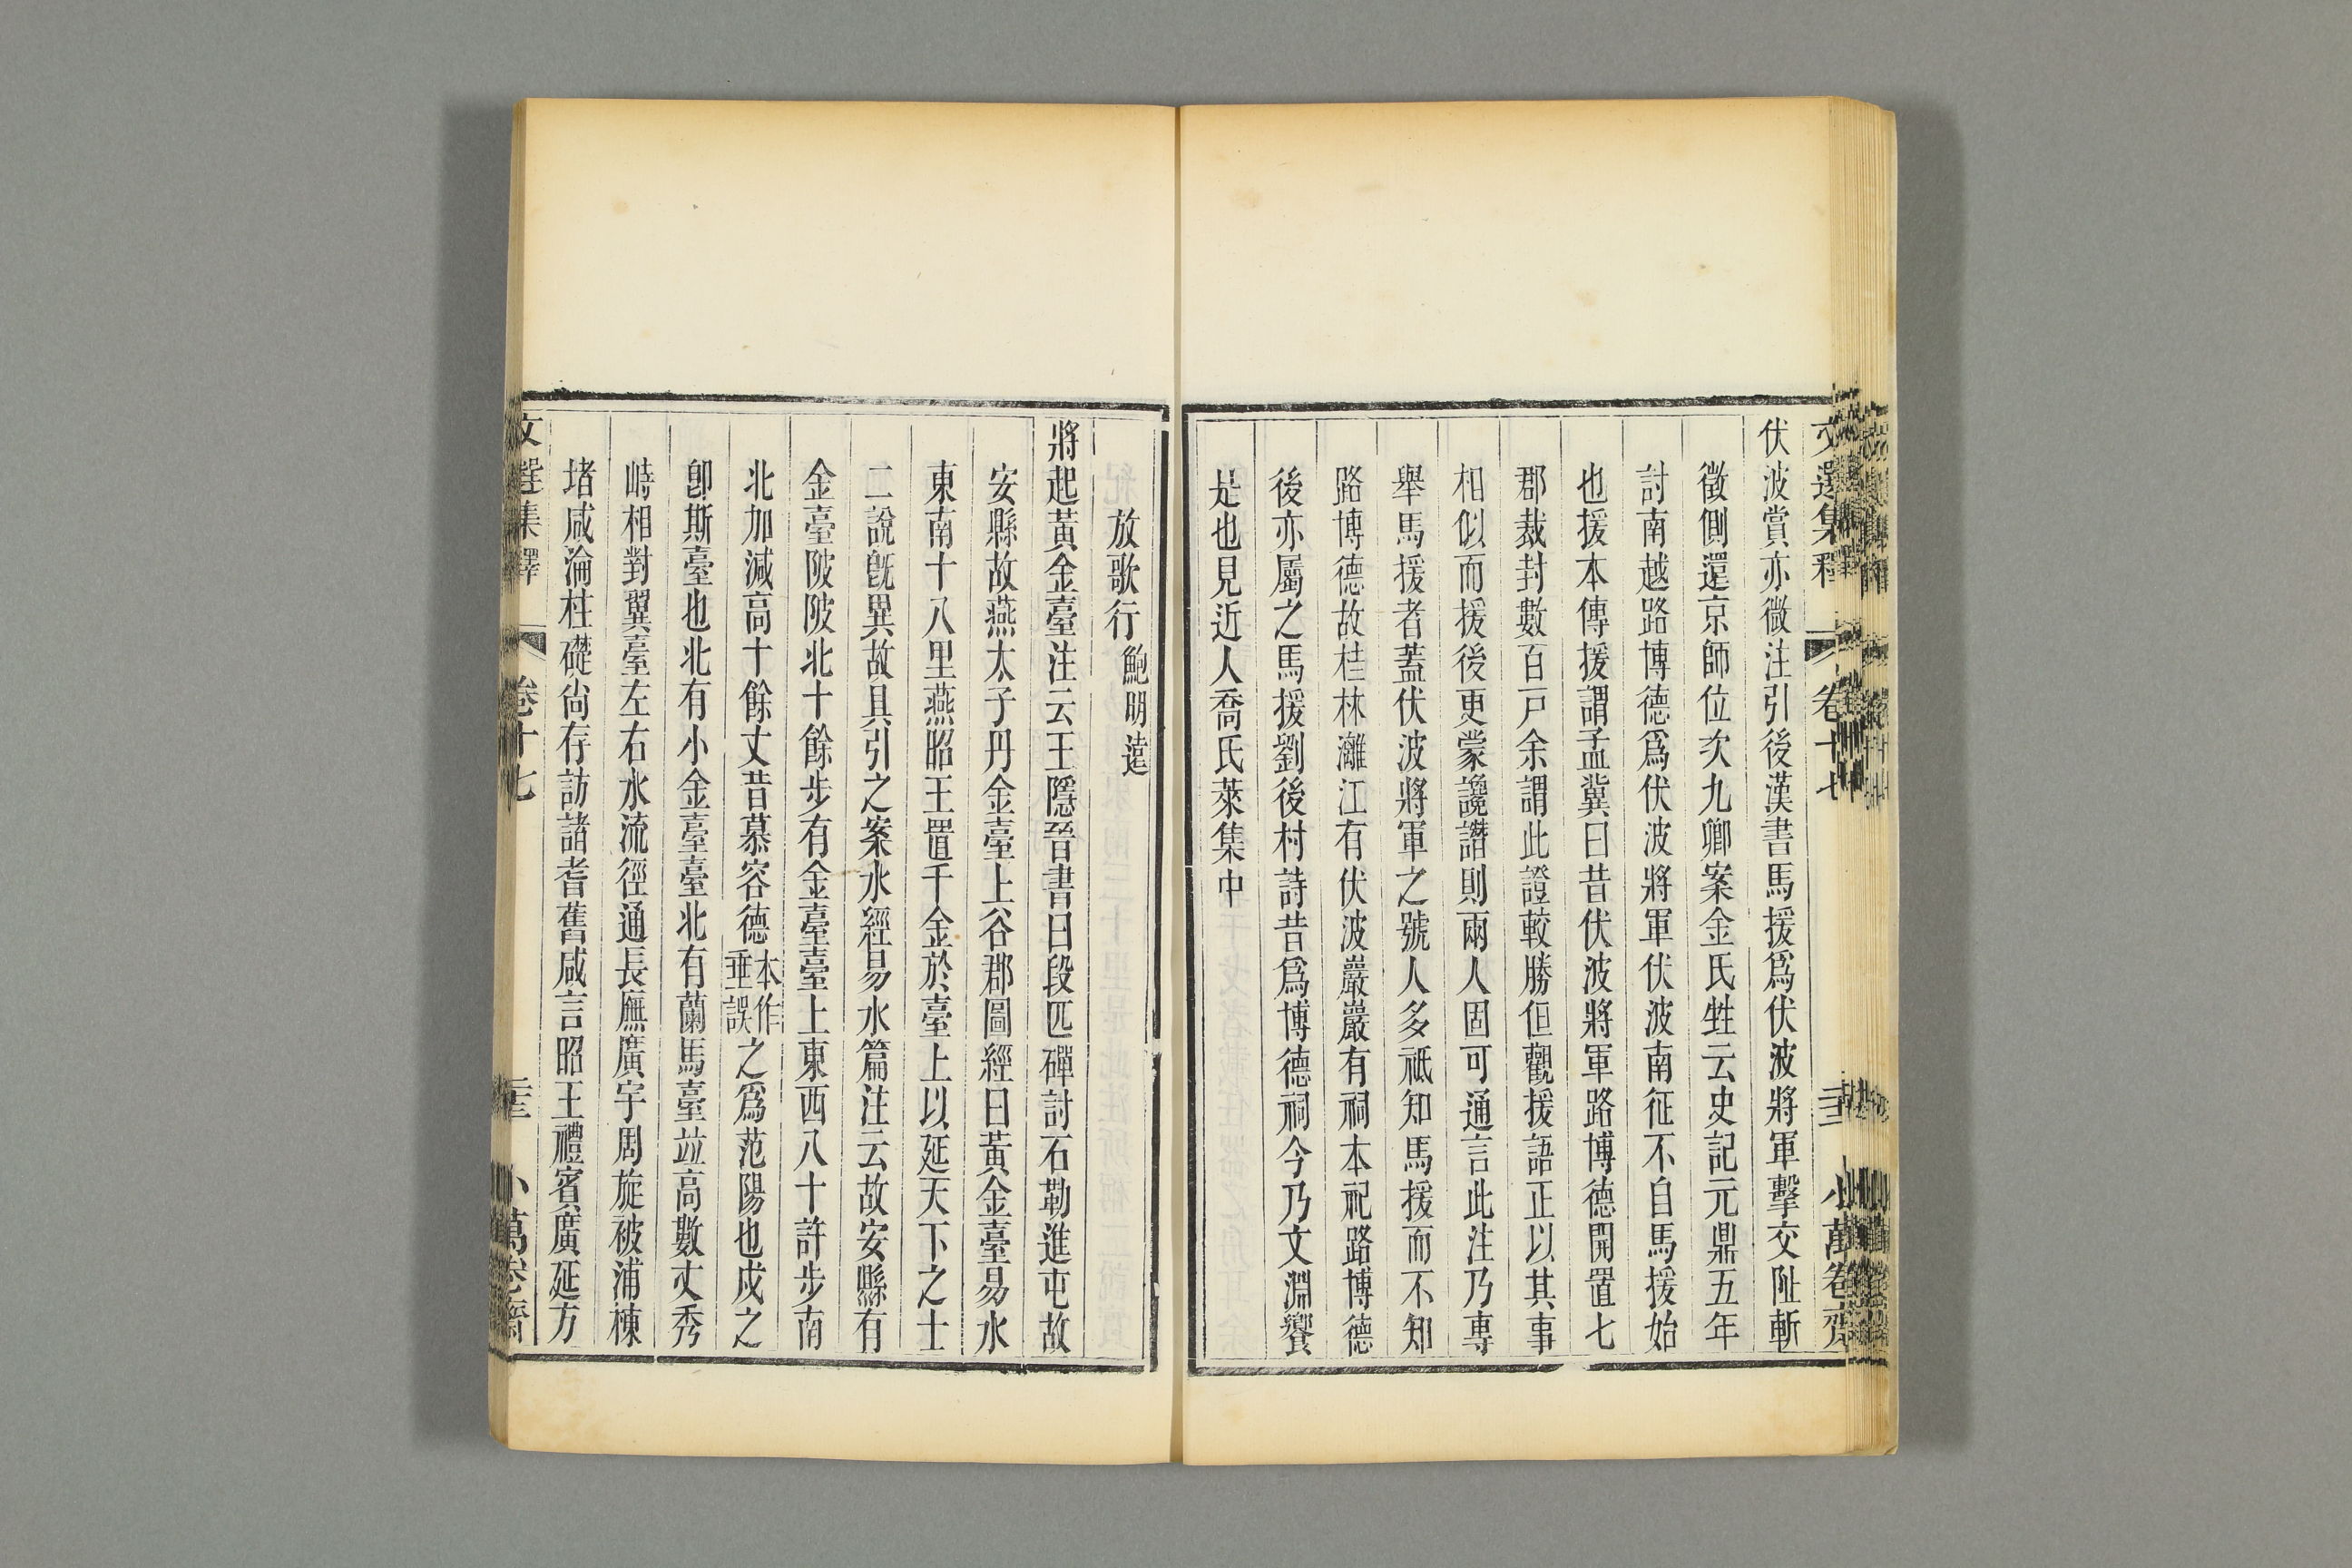 文選集釋 卷十七 小萬卷齋
伏波賞亦微注引後漢書馬援爲伏波將軍擊交阯斬
徵側還京師位次九卿案金氏甡云史記元鼎五年
討南越路博德爲伏波將軍伏波南征不自馬援始
也援本傳援謂孟冀曰昔伏波將軍路博德開置七
郡裁封數百戸余謂此證較勝但觀援語正以其事
相似而援後更蒙讒譖則兩人固可通言此注乃專
舉馬援者蓋伏波將軍之號人多祗知馬援而不知
路博德故桂林灕江有伏波巖巖有祠本祀路博德
後亦屬之馬援劉後村詩昔爲博德祠今乃文淵饗
是也見近人喬氏萊集中
放歌行 鮑明遠
將起黃金臺注云王隱晉書曰段匹磾討石勒進屯故
安縣故燕太子丹金臺上谷郡圖經曰黃金臺易水
東南十八里燕昭王置千金於臺上以延天下之士
二說旣異故具引之案水經易水篇注云故安縣有
金臺陂陂北十餘步有金臺臺上東西八十許步南
北加減高十餘丈昔慕容德本作垂誤之爲范陽也戍之
卽斯臺也北有小金臺臺北有蘭馬臺竝高數丈秀
峙相對翼臺左右水流徑通長廡廣宇周旋被浦棟
堵咸淪柱礎尙存訪諸耆舊咸言昭王禮賓廣延方
文選集釋 卷十七 小萬卷齋